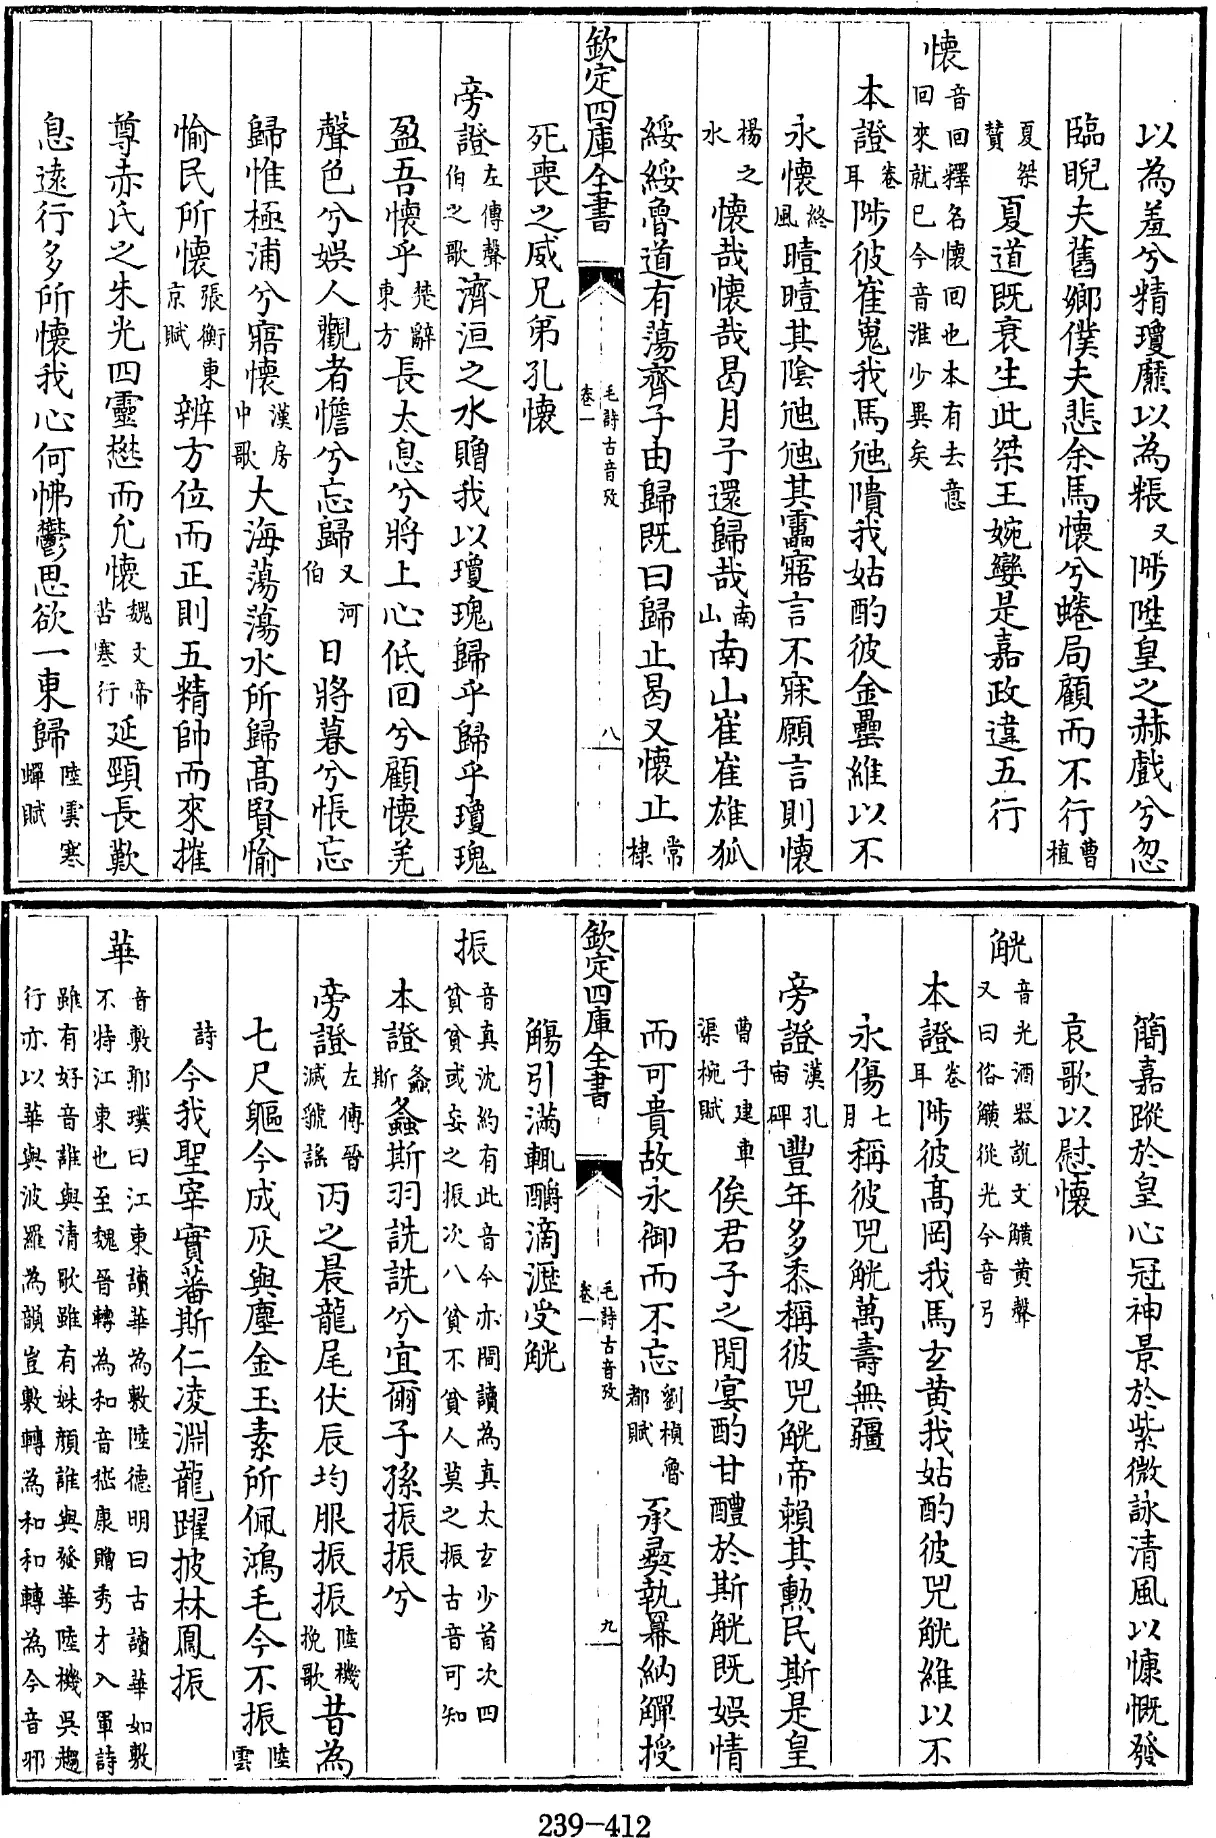 以為羞兮精瓊靡以為粻又陟陞皇之赫戲兮忽
臨睨夫舊鄉僕夫悲余馬懷兮蜷局顧而不行曹植
夏桀賛夏道既衰生此桀王婉孌是嘉政違五行
懷音回釋名懷回也本有去意回來就已今音淮少異矣
本證卷耳陟彼崔嵬我馬虺隤我姑酌彼金罍維以不
永懷終風曀曀其陰虺虺其靁寤言不寐願言則懷
楊之水懷哉懷哉曷月予還歸哉南山南山崔崔雄狐
綏綏魯道有蕩齊子由歸既曰歸止曷又懷止常棣
欽定四庫全書 毛詩古音攷卷一 八
死喪之威兄弟孔懷
旁證左傳聲伯之歌濟洹之水贈我以瓊瑰歸乎歸乎瓊瑰
盈吾懷乎楚辭東方長太息兮將上心低回兮顧懷羌
聲色兮娛人觀者憺兮忘歸又河伯日將暮兮悵忘
歸惟極浦兮寤懷漢房中歌大海蕩蕩水所歸高賢愉
愉民所懷張衡東京賦辨方位而正則五精帥而來摧
尊赤氏之朱光四靈懋而允懷魏文帝苦寒行延頸長歎
息遠行多所懷我心何怫鬱思欲一東歸陸雲寒蟬賦
簡嘉蹤於皇心冠神景於紫微詠清風以慷慨發
哀歌以慰懷
觥音光酒器説文觵黄聲又曰俗觵從光今音弓
本證卷耳陟彼高岡我馬玄黄我姑酌彼兕觥維以不
永傷七月稱彼兕觥萬壽無疆
旁證漢孔宙碑豐年多黍稱彼兕觥帝賴其勲民斯是皇
曹子建車渠椀賦俟君子之閒宴酌甘醴於斯觥既娛情
而可貴故永御而不忘劉楨魯都賦承彜執冪納觶授
欽定四庫全書 毛詩古音攷卷一 九
觴引滿輒釂滴瀝受觥
振音真沈約有此音今亦間讀為真太玄少首次四貧貧或妄之振次八貧不貧人莫之振古音可知
本證螽斯螽斯羽詵詵兮宜爾子孫振振兮
旁證左傳晉滅虢謠丙之晨龍尾伏辰均服振振陸機挽歌昔為
七尺軀今成灰與塵金玉素所佩鴻毛今不振陸雲
詩今我聖宰實蕃斯仁凌淵龍躍披林鳳振
華音敷郭璞曰江東讀華為敷陸德明曰古讀華如敷不特江東也至魏晉轉為和音嵇康贈秀才入軍詩
雖有好音誰與清歌雖有姝顔誰與發華陸機吳趨行亦以華與波羅為韻豈敷轉為和和轉為今音邪
239-412